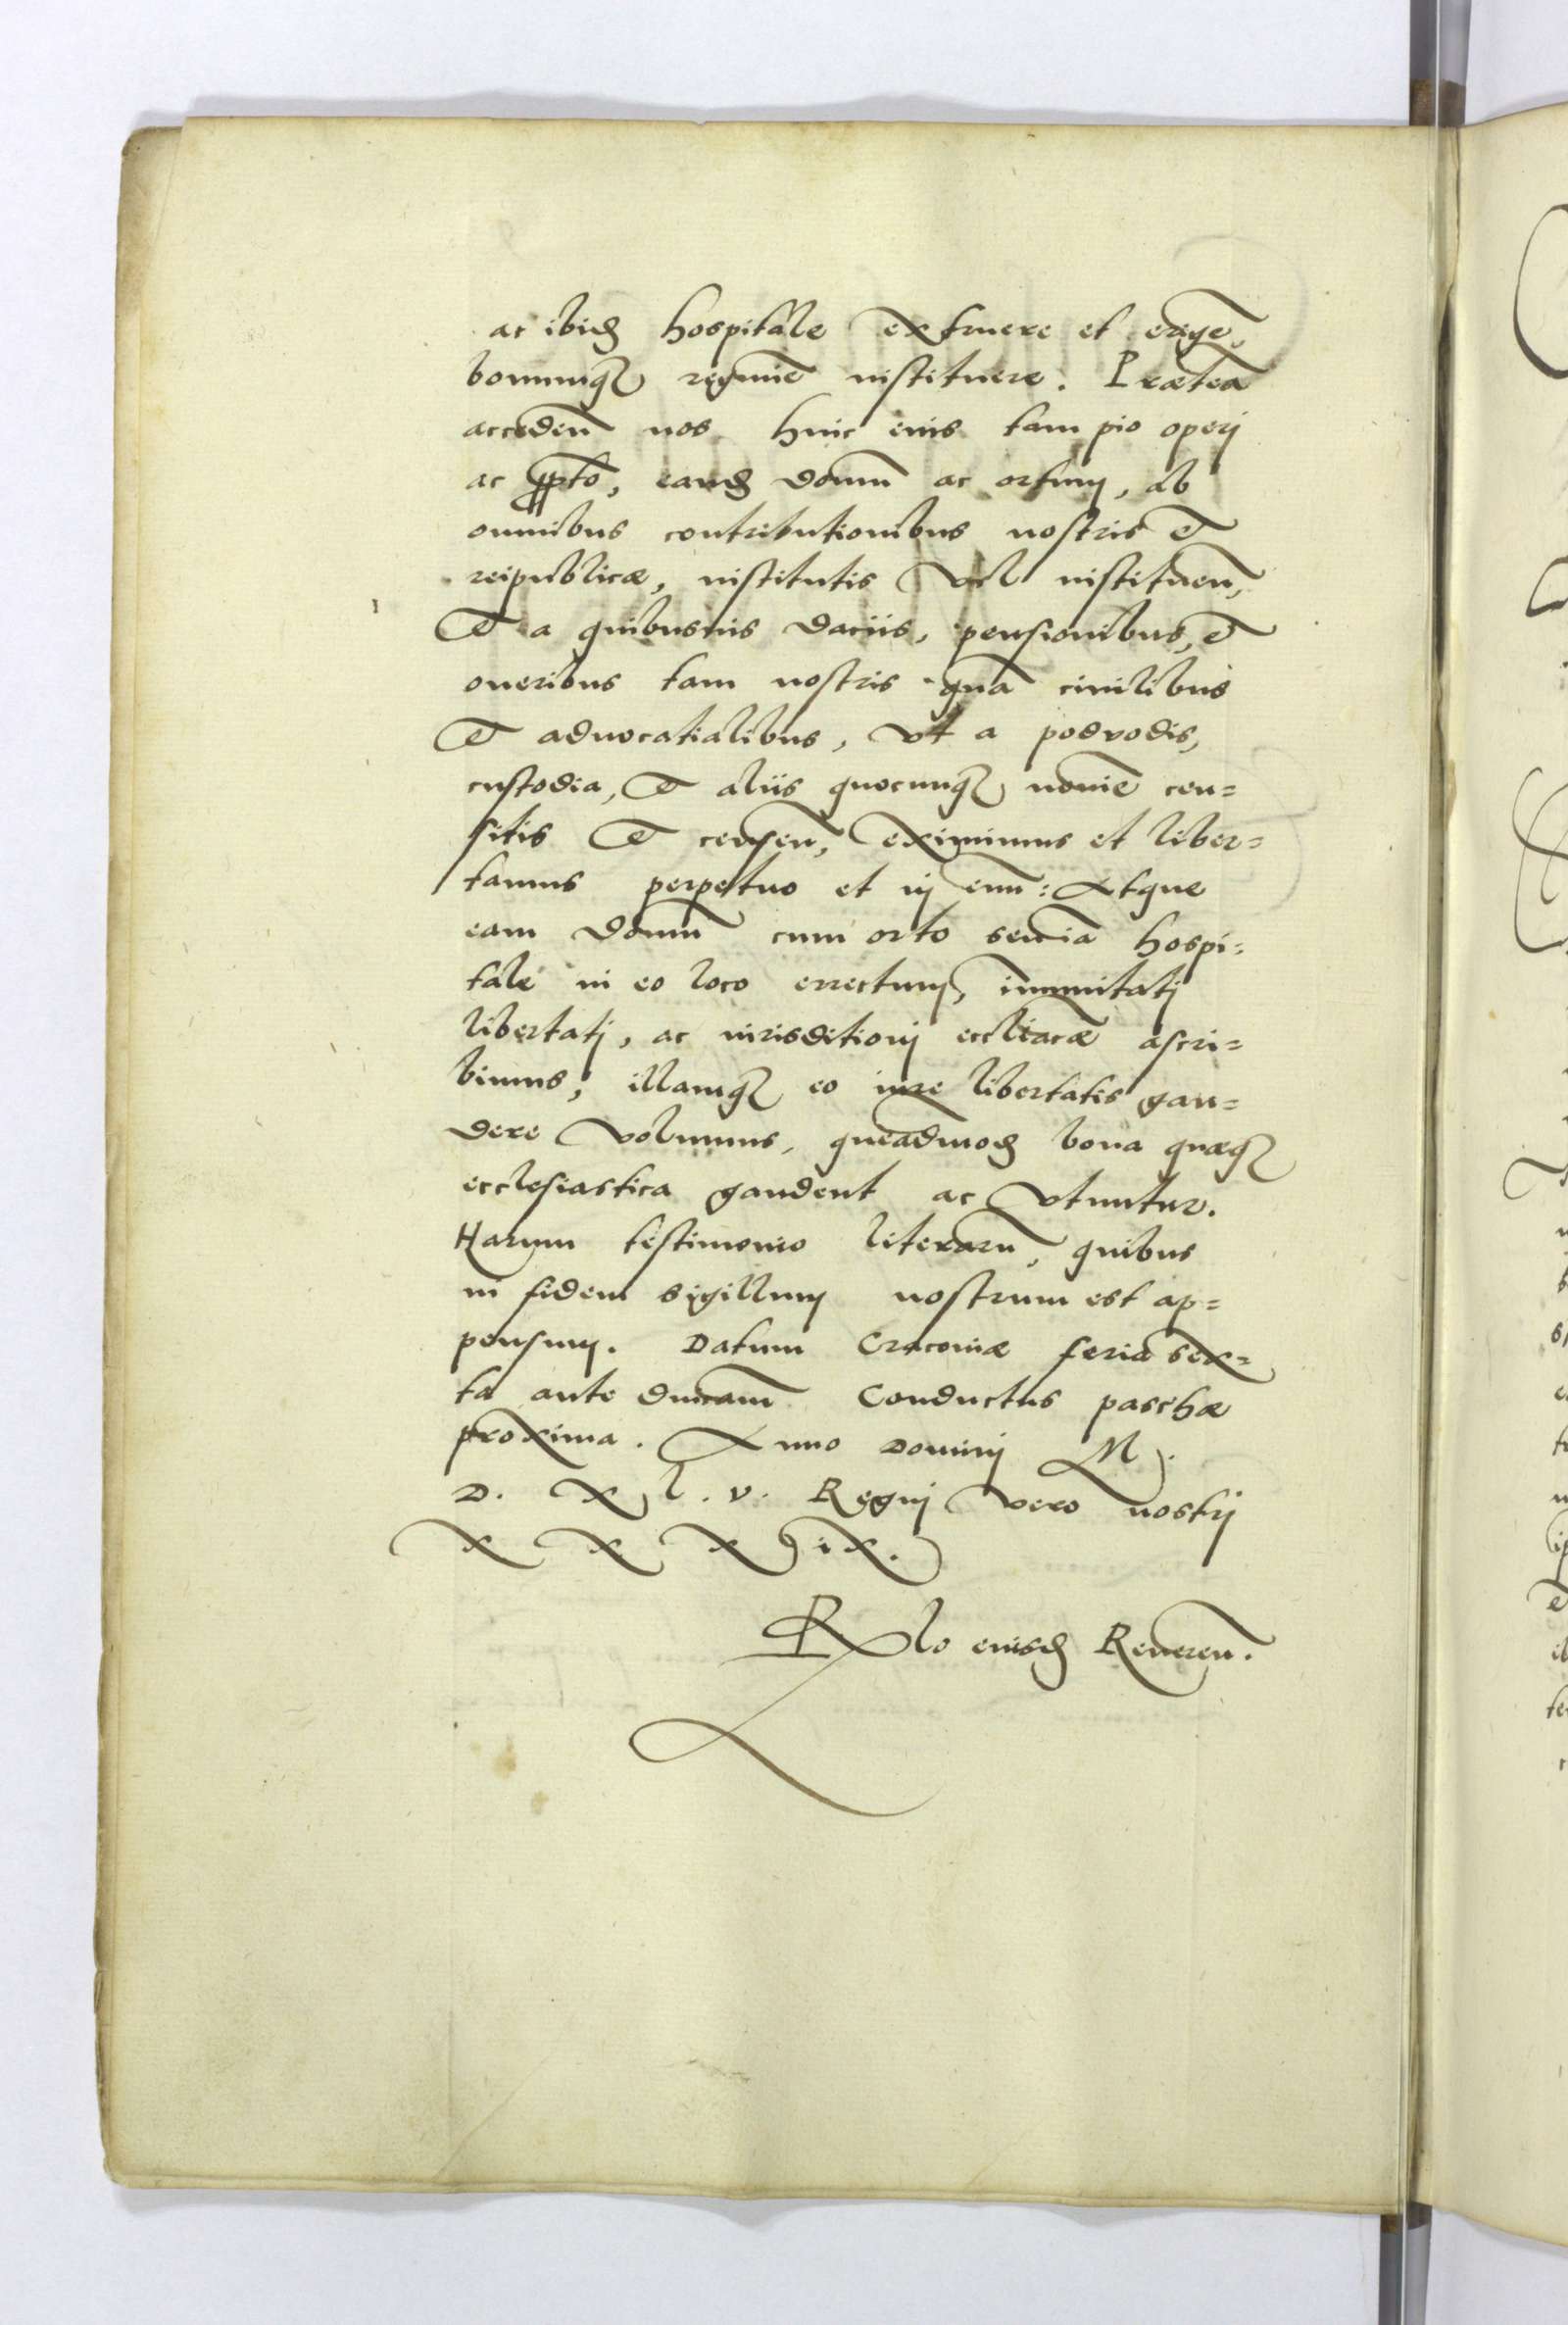 ac ibid hospitale extruere et erige,
bonumq regimē instituere. Præteā
acceden̄ nos huic eius tam pio operi
ac ꝓpto, eand domū ac ortum, ab
omnibus contributionibus nostris et
reipublicæ, institutis vel instituen̄,
et a quibusuis daciis, pensionibus, et
oneribus tam nostris quā ciuilibus
et aduocatialibus, vt a podvodis,
custodia, et aliis quocunq nomiē cen=
sitis et censen̄, eximimus et liber=
tamus perpetuo et in euū: Atque
eam domū cum orto seu iā hospi=
tale in eo loco errectum, immunitati
libertati, ac iurisditioni eccliacæ ascri=
bimus, illamq eo iure libertatis gau=
dere volumus, queādmod bona quæq
ecclesiastica gaudent ac vtuntur.
Harum testimonio literarū, quibus
in fidem sigillum nostrum est ap=
pensum. Datum Cracouiæ feria sex=
ta ante dnicam̄ Conductus paschæ
proxima. Anno Domini M.
D. X l. v. Regni vero nostri
X X X ix.
Rlo eiusd Reueren̄.